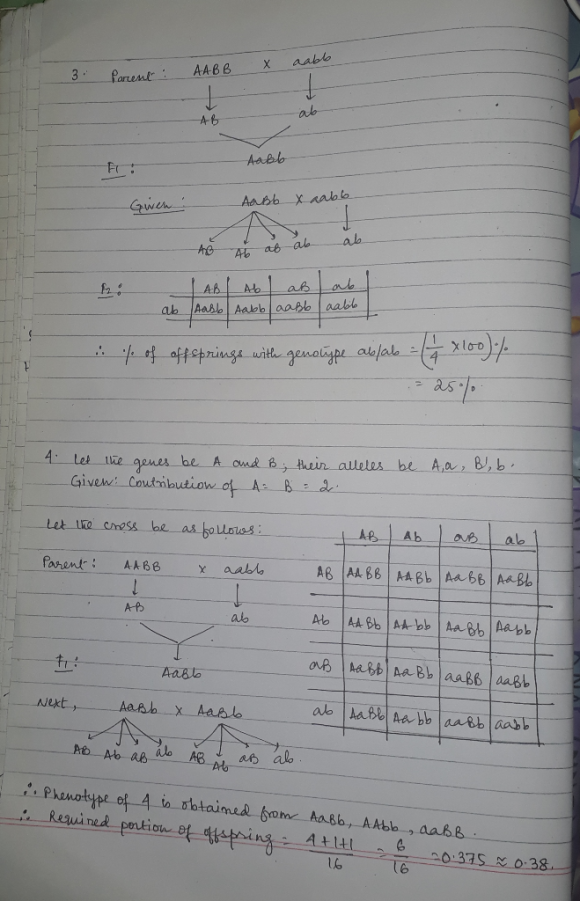 3. Parent: AABB X aabb
AB ab
F1: AaBb
Given: AaBb X aabb
AB Ab aB ab ab
F2: AB Ab aB ab
ab AaBb Aabb aaBb aabb
∴ % of offsprings with genotype ab/ab = (1/4 × 100) %
= 25 %
4. Let the genes be A and B, their alleles be A,a, B, b.
Given: Contribution of A = B = 2.
Let the cross be as follows:
Parent: AABB x aabb
AB ab
F1: AaBb
Next, AaBb x AaBb
AB Ab aB ab AB Ab aB ab.
AB Ab aB ab
AB AABB AABb AaBB AaBb
Ab AABb AAbb AaBb Aabb
aB AaBB AaBb aaBB aaBb
ab AaBb Aabb aaBb aabb
∴ Phenotype of 4 is obtained from AaBb, AAbb, aaBB.
∴ Required portion of offspring = 4+1+1/16 = 6/16 = 0.375 ≈ 0.38.